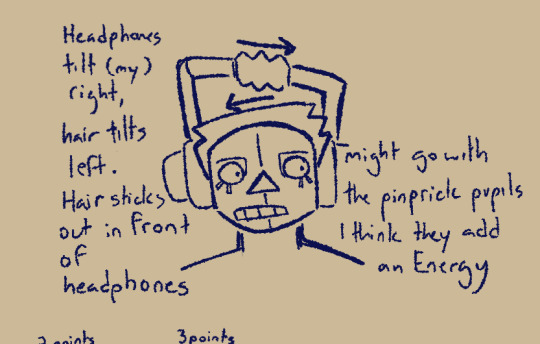 Headphones
tilt (my)
right,
hair tilts
left.
Hair sticks
out in front
of
headphones
might go with
the pinprick pupils
I think they add
an Energy
points
3 points